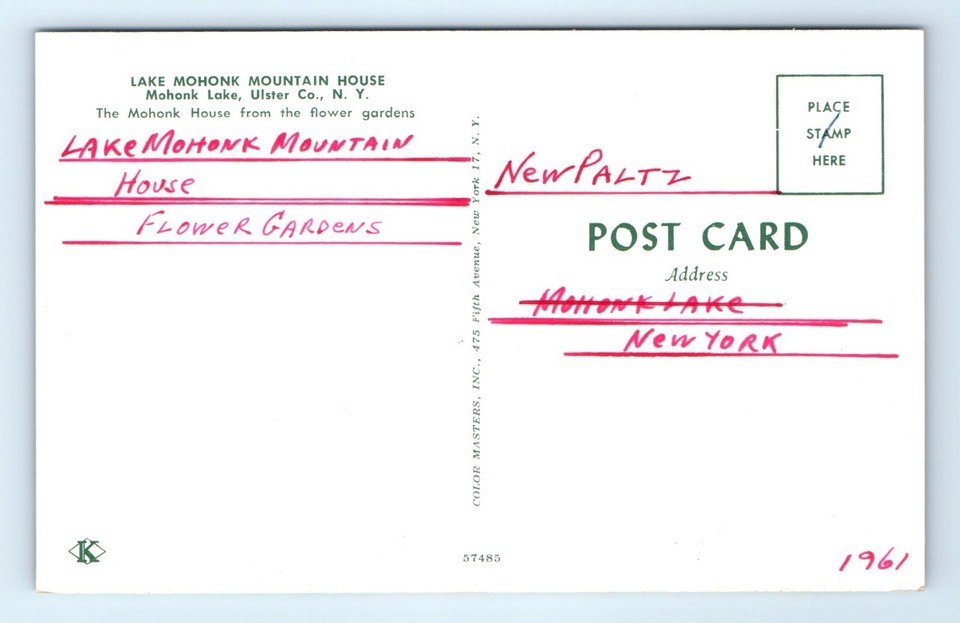 LAKE MOHONK MOUNTAIN HOUSE
Mohonk Lake, Ulster Co., N. Y.
The Mohonk House from the flower gardens
LAKE MOHONK MOUNTAIN
HOUSE
FLOWER GARDENS
COLOR MASTERS, INC., 475 Fifth Avenue, New York 17, N. Y.
PLACE
STAMP
HERE
NEW PALTZ
POST CARD
Address
MOHONK LAKE
NEW YORK
K
57485
1961